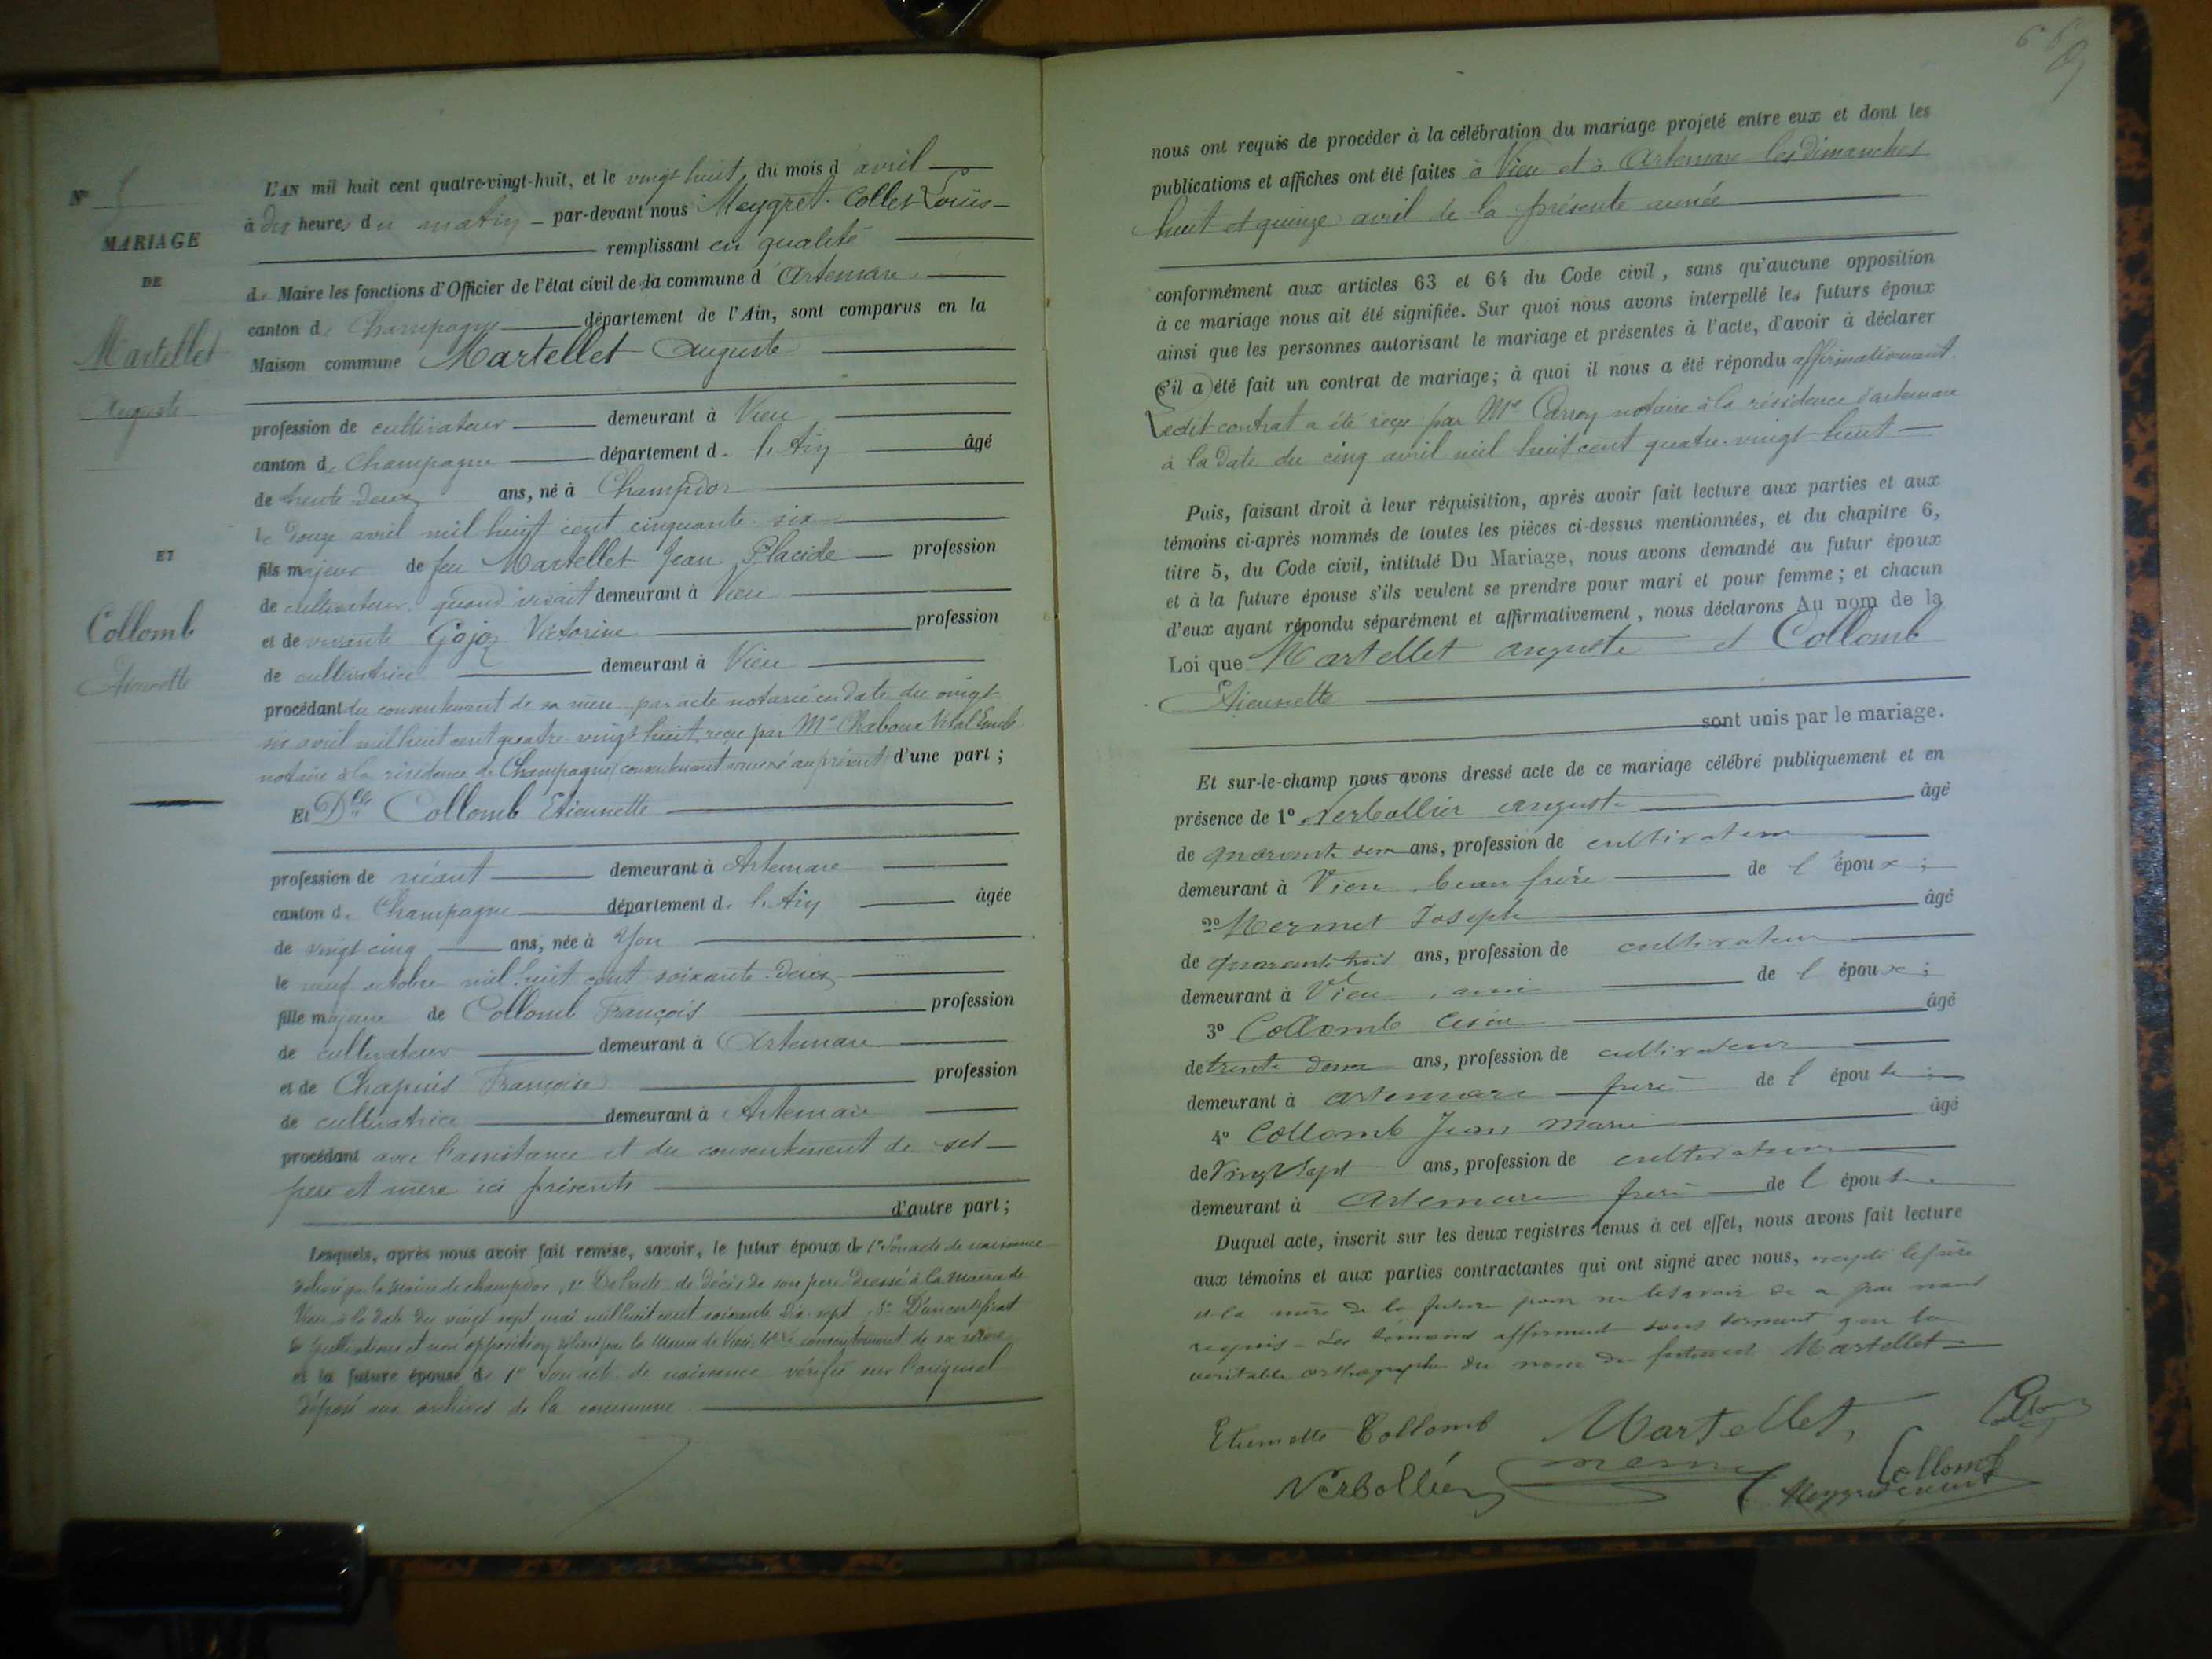 N° 5
MARIAGE
DE
Martellet
Auguste
ET
Collomb
Etiennette
L'AN mil huit cent quatre-vingt-huit, et le vingt huit du mois d'avril
à dix heures du matin par-devant nous Meygret-Collet Louis
remplissant en qualité
de Maire les fonctions d'Officier de l'état civil de la commune d'Artemare
canton de Champagne département de l'Ain, sont comparus en la
Maison commune Martellet Auguste
profession de cultivateur demeurant à Vieu
canton de Champagne département de l'Ain âgé
de trente deux ans, né à Champdor
le douze avril mil huit cent cinquante-six
fils majeur de feu Martellet Jean Placide profession
de cultivateur quand vivait demeurant à Vieu
et de vivante Gojoz Victorine profession
de cultivatrice demeurant à Vieu
procédant du consentement de sa mère par acte notarié en date du vingt
six avril mil huit cent quatre-vingt huit reçu par Me Chaboux Vital Emile
notaire à la résidence de Champagne consentement annexé au présent d'une part ;
Et Dlle Collomb Etiennette
profession de néant demeurant à Artemare
canton de Champagne département de l'Ain âgée
de vingt cinq ans, née à Yon
le neuf octobre mil huit cent soixante-deux
fille majeure de Collomb François profession
de cultivateur demeurant à Artemare
et de Chapuis Françoise profession
de cultivatrice demeurant à Artemare
procédant avec l'assistance et du consentement de ses
père et mère ici présents
d'autre part ;
Lesquels, après nous avoir fait remise, savoir, le futur époux de 1° Son acte de naissance
délivré par la mairie de Champdor, 2° De l'acte de décès de son père dressé à la Mairie de
Vieu à la date du vingt sept mai mil huit cent soixante dix-sept 3° D'un certificat
de publications et non opposition délivré par le Maire de Vieu 4° Le consentement de sa mère
et la future épouse de 1° Son acte de naissance vérifié sur l'original
déposé aux archives de la commune
nous ont requis de procéder à la célébration du mariage projeté entre eux et dont les
publications et affiches ont été faites à Vieu et à Artemare les dimanches
huit et quinze avril de la présente année
conformément aux articles 63 et 64 du Code civil, sans qu'aucune opposition
à ce mariage nous ait été signifiée. Sur quoi nous avons interpellé les futurs époux
ainsi que les personnes autorisant le mariage et présentes à l'acte, d'avoir à déclarer
s'il a été fait un contrat de mariage; à quoi il nous a été répondu affirmativement
Ledit contrat a été reçu par Me Carrey notaire à la résidence d'artemare
à la date du cinq avril mil huit cent quatre-vingt-huit
Puis, faisant droit à leur réquisition, après avoir fait lecture aux parties et aux
témoins ci-après nommés de toutes les pièces ci-dessus mentionnées, et du chapitre 6,
titre 5, du Code civil, intitulé Du Mariage, nous avons demandé au futur époux
et à la future épouse s'ils veulent se prendre pour mari et pour femme ; et chacun
d'eux ayant répondu séparément et affirmativement, nous déclarons Au nom de la
Loi que Martellet auguste et Collomb
Etiennette
sont unis par le mariage.
Et sur-le-champ nous avons dressé acte de ce mariage célébré publiquement et en
présence de 1° Verbollier auguste âgé
de quarante deux ans, profession de cultivateur
demeurant à Vieu beau frère de l'époux ;
2° Mermet Joseph âgé
de quarante trois ans, profession de cultivateur
demeurant à Vieu, ami de l'époux ;
3° Collomb César âgé
de trente deux ans, profession de cultivateur
demeurant à artemare frère de l'épouse ;
4° Collomb Jean Marie âgé
de Vingt Sept ans, profession de cultivateur
demeurant à artemare frère de l'épouse.
Duquel acte, inscrit sur les deux registres tenus à cet effet, nous avons fait lecture
aux témoins et aux parties contractantes qui ont signé avec nous, excepté le père
et la mère de la future pour ne le savoir de ce par nous
requis - Les témoins affirment sous serment que la
véritable orthographe du nom du futur est Martellet
Etiennette Collomb Martellet
Verbollier Collomb